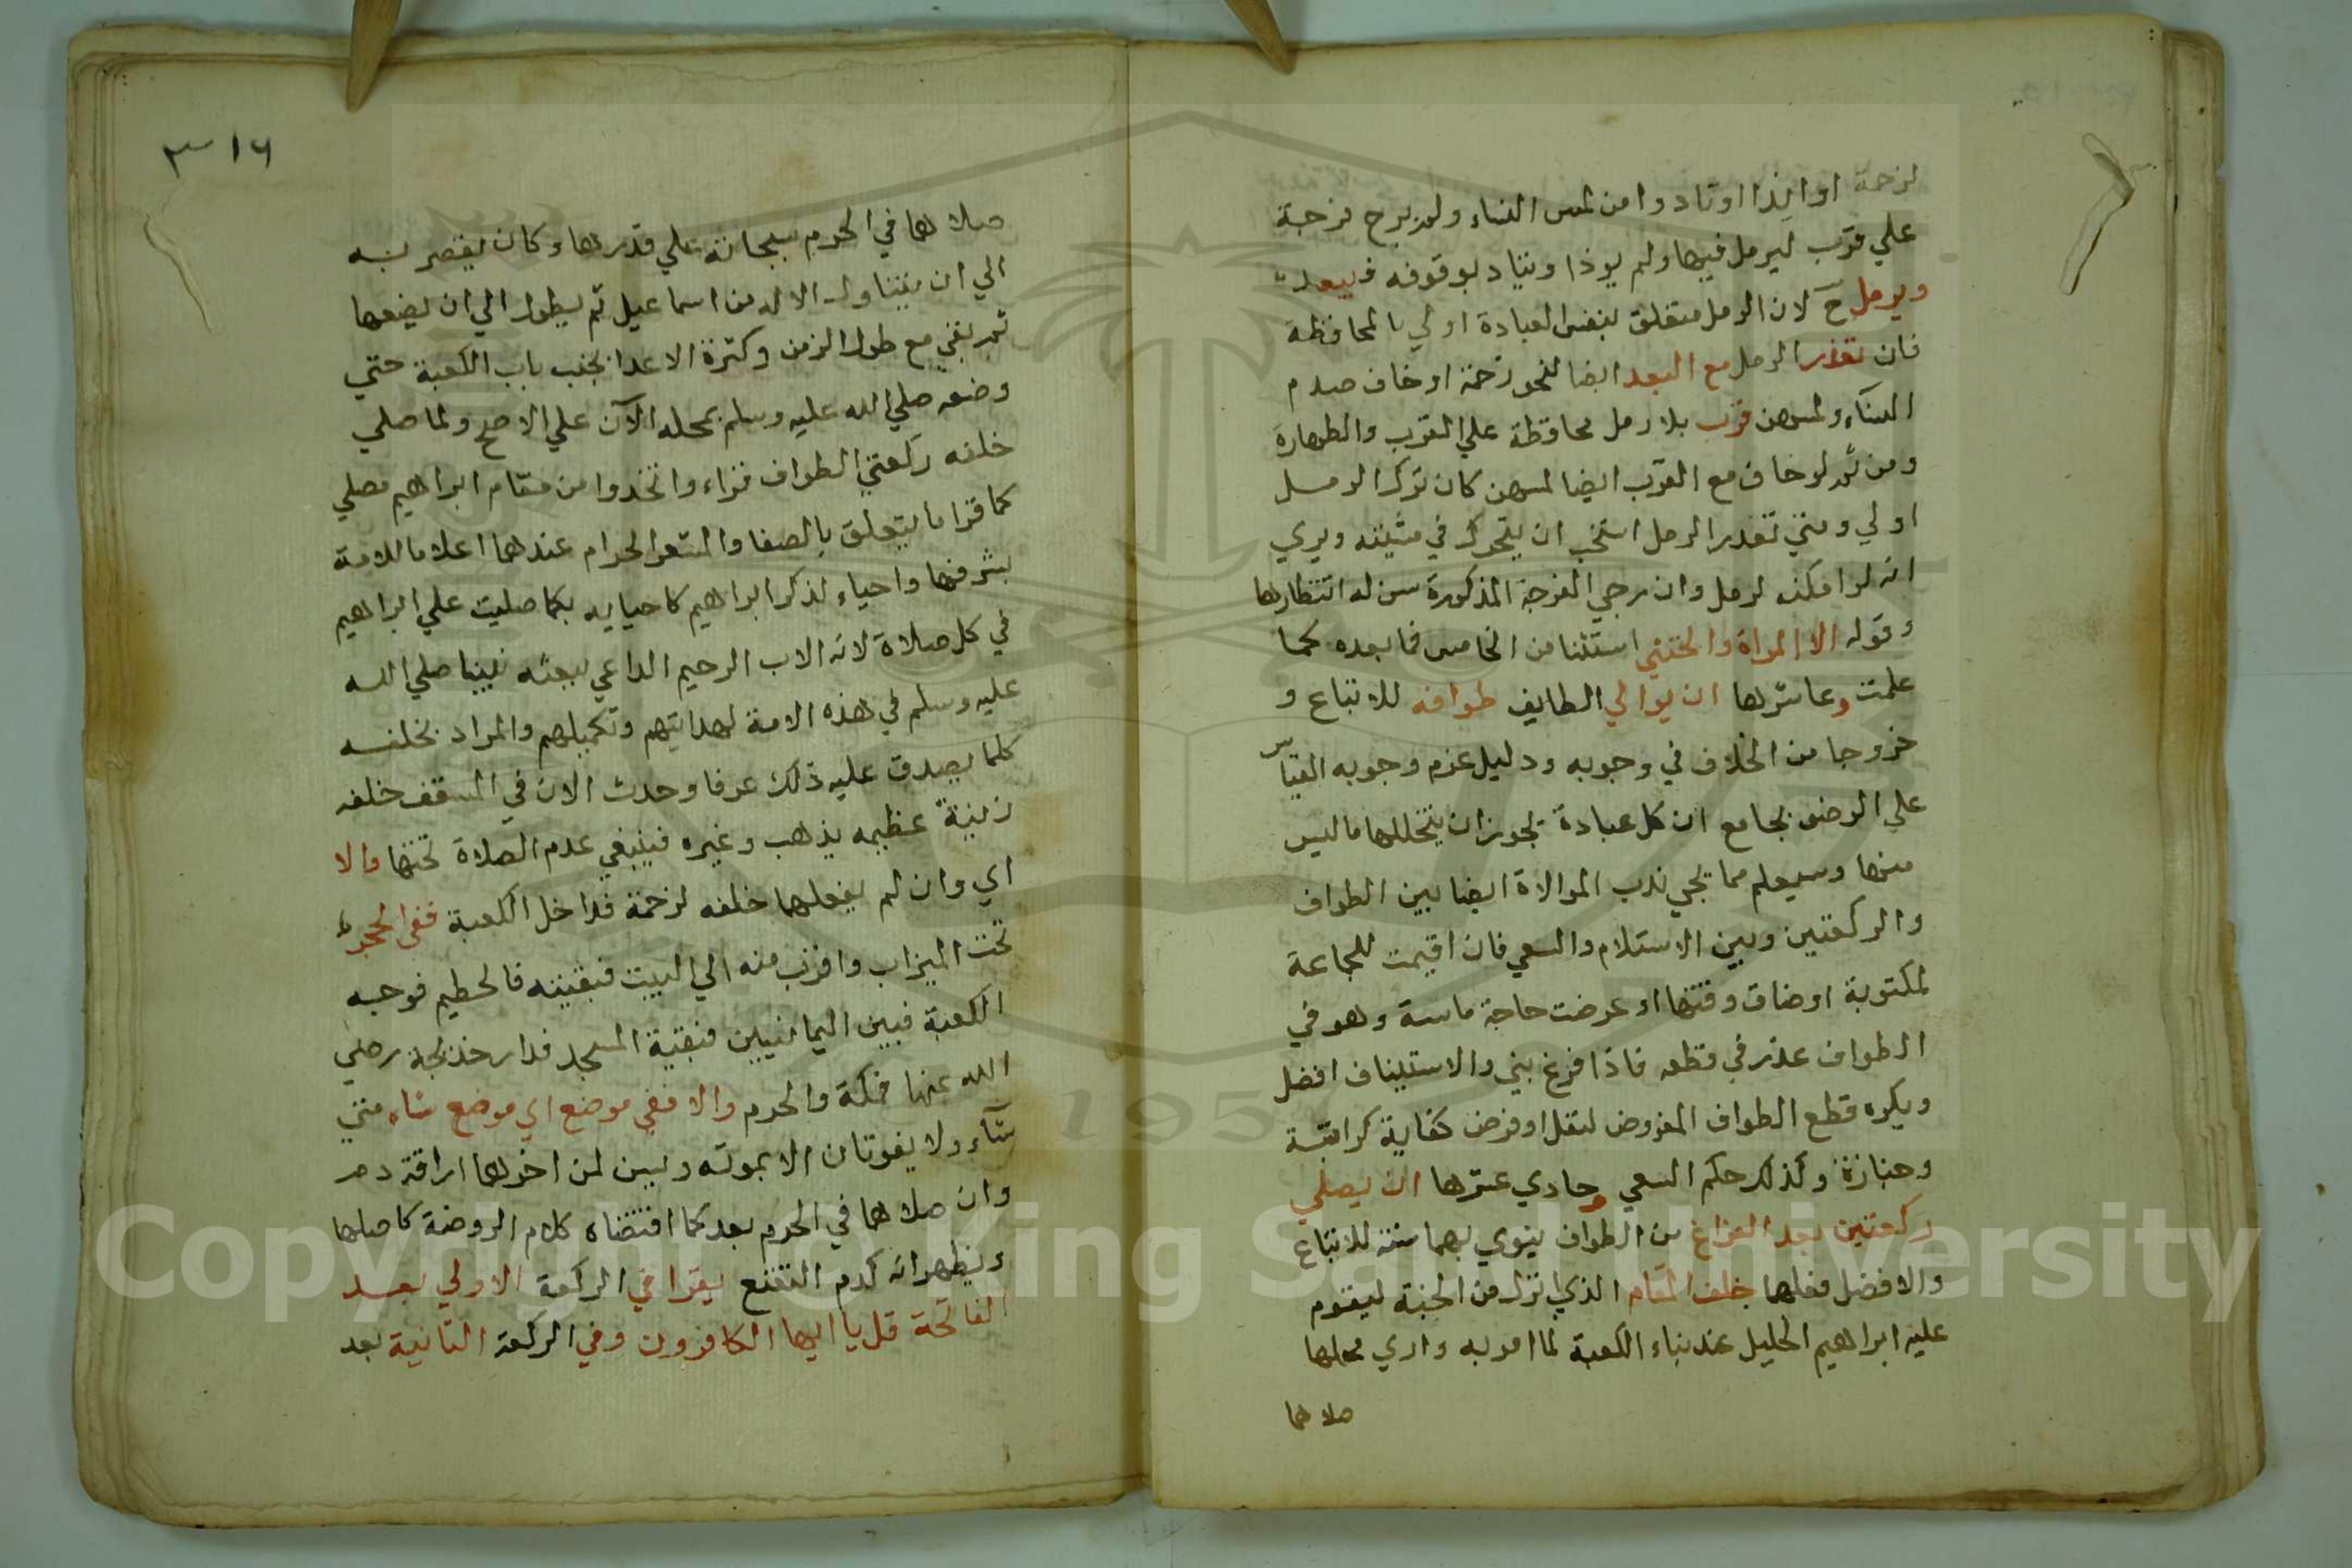 لزحمة او ايذا او تاذ وامن لمس النساء ولم يرج فرجة
علي قرب ليرمل فيها ولم يوذا ويتاد بوقوفه فيبعد
ويرمل ح لان الرمل متعلق بنفس العبادة اولي بالمحافظة
فان تعذر الرمل مع البعد ايضا لنحو زحمة او خاف صدم
النساء ولمسهن قرب بلا رمل محافظة علي القرب والطهارة
ومن ثم لو خاف مع القرب ايضا لمسهن كان ترك الرمل
اولي ومتي تعذر الرمل استحب ان يتحرك في مشيته ويري
انه لو امكنه لرمل وان رجي الفرجة المذكورة سن له انتظارها
وقوله الا المراة والخنثي استثنا من الخامس فما بعده كما
علمت وعاشرها ان يوالي الطايف طوافه للاتباع و
خروجا من الخلاف في وجوبه ودليل عدم وجوبه القياس
علي الوضو بجامع ان كل عبادة يجوز ان يتخللها ما ليس
منها وسيعلم مما يجي ندب الموالاة ايضا بين الطواف
والركعتين وبين الاستلام والسعي فان اقيمت الجماعة
لمكتوبة او ضاق وقتها او عرضت حاجة ماسة وهو في
الطواف عذر في قطعه فاذا فرغ بني والاستيناف افضل
ويكره قطع الطواف المفروض لنفل او فرض كفاية كراتبة
وجنازة وكذلك حكم السعي وحادي عشرها ان يصلي
ركعتين بعد الفراغ من الطواف ينوي بهما سنته للاتباع
والافضل فعلهما خلف المقام الذي نزل من الجنة ليقوم
عليه ابراهيم الخليل عند بناء الكعبة لما امر به واري محلها
صلاهما
٣ ١٦
صلاهما في الحرم سبحانه علي قدرها وكان يقصر به
الي ان يتناول الاله من اسماعيل ثم يطول الي ان يضعها
ثم بقي مع طول الزمن وكثرة الاعدا بجنب باب الكعبة حتي
وضعه صلي الله عليه وسلم بمحله الآن علي الاصح ولما صلي
خلفه ركعتي الطواف قراء واتخذوا من مقام ابراهيم مصلي
كما قرا ما يتعلق بالصفا والمشعر الحرام عندهما اعلاما للامة
بشرفها واحياء لذكر ابراهيم كاحيايه بكما صليت علي ابراهيم
في كل صلاة لانه الاب الرحيم الداعي ببعثه نبينا صلي الله
عليه وسلم في هذه الامة لهدايتهم وتكميلهم والمراد بخلفه
كلما يصدق عليه ذلك عرفا وحدث الان في السقف خلفه
زينة عظيمه بذهب وغيره فينبغي عدم الصلاة تحتها والا
اي وان لم يفعلهما خلفه لزحمة فداخل الكعبة ففي الحجر
تحت الميزاب واقرب منه الي البيت فبقيته فالحطيم فوجه
الكعبة فبين اليمانيين فبقية المسجد فدار خديجة رضي
الله عنها فمكة والحرم والا ففي موضع اي موضع شاء متي
شآء ولا يفوتان الا بموته ويسن لمن اخرهما اراقة دم
وان صلاهما في الحرم بعد كما اقتضاه كلام الروضة كاصلها
ويظهر انه كدم التمتع يقرا في الركعة الاولي بعد
الفاتحة قل يا ايها الكافرون وفي الركعة الثانية بعد
Copyright © King Saud University
1957